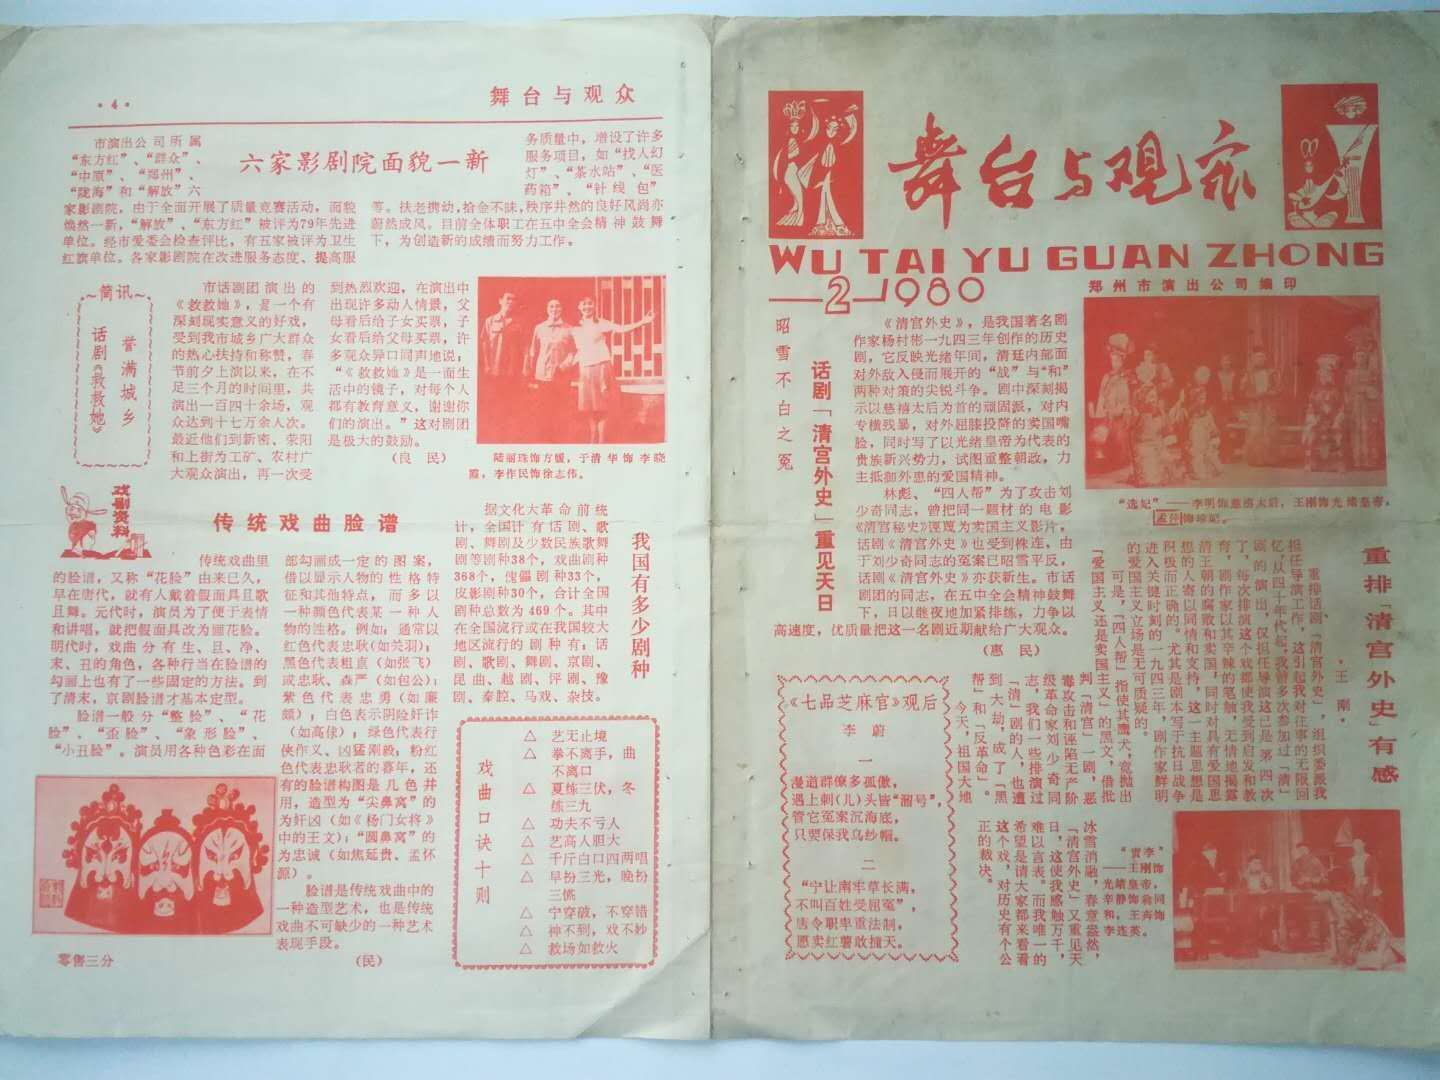 ·4·
舞台与观众
六家影剧院面貌一新
市演出公司所属
“东方红”、“群众”、
“中原”、“郑州”、
“陇海”和“解放”六
家影剧院，由于全面开展了质量竞赛活动，面貌
焕然一新，“解放”、“东方红”被评为79年先进
单位。经市爱委会检查评比，有五家被评为卫生
红旗单位。各家影剧院在改进服务态度、提高服
务质量中，增设了许多
服务项目，如“找人幻
灯”、“茶水站”、“医
药箱”、“针线包”
等。扶老携幼，拾金不昧，秩序井然的良好风尚亦
蔚然成风。目前全体职工在五中全会精神鼓舞
下，为创造新的成绩而努力工作。
简讯
话剧《救救她》
誉满城乡
市话剧团演出的
《救救她》，是一个有
深刻现实意义的好戏，
受到我市城乡广大群众
的热心扶持和称赞，春
节前夕上演以来，在不
足三个月的时间里，共
演出一百四十余场，观
众达到十七万余人次。
最近他们到新密、荥阳
和上街为工矿、农村广
大观众演出，再一次受
到热烈欢迎，在演出中
出现许多动人情景，父
母看后给子女买票，子
女看后给父母买票，许
多观众异口同声地说：
“《救救她》是一面生
活中的镜子，对每个人
都有教育意义，谢谢你
们的演出。”这对剧团
是极大的鼓励。
（良 民）
陆丽珠饰方媛，于清华饰李晓
霞，李作民饰徐志伟。
戏剧资料
传统戏曲脸谱
传统戏曲里
的脸谱，又称“花脸”由来已久，
早在唐代，就有人戴着假面具且歌
且舞。元代时，演员为了便于表情
和讲唱，就把假面具改为画花脸。
明代时，戏曲分有生、旦、净、
末、丑的角色，各种行当在脸谱的
勾画上也有了一些固定的方法。到
了清末，京剧脸谱才基本定型。
脸谱一般分“整脸”、“花
脸”、“歪脸”、“象形脸”、
“小丑脸”。演员用各种色彩在面
部勾画成一定的图案，
借以显示人物的性格特
征和其他特点，而多以
一种颜色代表某一种人
物的性格。例如：通常以
红色代表忠耿(如关羽)；
黑色代表粗直(如张飞)
或忠耿、森严(如包公)；
紫色代表忠勇(如廉
颇)；白色表示阴险奸诈
(如高俅)；绿色代表行
侠作义、凶猛刚毅；粉红
色代表忠耿者的暮年，还
有的脸谱构图是几色并
用，造型为“尖鼻窝”的
为奸凶(如《杨门女将》
中的王文)；“圆鼻窝”的
为忠诚(如焦延贵、孟怀
源)。
脸谱是传统戏曲中的
一种造型艺术，也是传统
戏曲不可缺少的一种艺术
表现手段。
（民）
零售三分
我国有多少剧种
据文化大革命前统
计，全国计有话剧、歌
剧、舞剧及少数民族歌舞
剧等剧种38个，戏曲剧种
368个，傀儡剧种33个，
皮影剧种30个，合计全国
剧种总数为469个。其中
在全国流行或在我国较大
地区流行的剧种有：话
剧、歌剧、舞剧、京剧、
昆曲、越剧、评剧、豫
剧、秦腔、马戏、杂技。
戏曲口诀十则
△ 艺无止境
△ 拳不离手，曲
不离口
△ 夏练三伏，冬
练三九
△ 功夫不亏人
△ 艺高人胆大
△ 千斤白口四两唱
△ 早扮三光，晚扮
三慌
△ 宁穿破，不穿错
△ 神不到，戏不妙
△ 救场如救火
舞台与观众
WU TAI YU GUAN ZHONG
2 1980
郑州市演出公司编印
昭雪不白之冤
话剧「清宫外史」重见天日
《清宫外史》，是我国著名剧
作家杨村彬一九四三年创作的历史
剧，它反映光绪年间，清廷内部面
对外敌入侵而展开的“战”与“和”
两种对策的尖锐斗争。剧中深刻揭
示以慈禧太后为首的顽固派，对内
专横残暴，对外屈膝投降的卖国嘴
脸，同时写了以光绪皇帝为代表的
贵族新兴势力，试图重整朝政，力
主抵御外患的爱国精神。
林彪、“四人帮”为了攻击刘
少奇同志，曾把同一题材的电影
《清宫秘史》诬蔑为卖国主义影片。
话剧《清宫外史》也受到株连，由
于刘少奇同志的冤案已昭雪平反，
话剧《清宫外史》亦获新生。市话
剧团的同志，在五中全会精神鼓舞
下，日以继夜地加紧排练，力争以
高速度，优质量把这一名剧近期献给广大观众。
（惠 民）
“选妃”——李明饰慈禧太后，王刚饰光绪皇帝，
孟萍饰珍妃。
重排「清宫外史」有感
·王南·
重排话剧「清宫外史」，组织委派我
担任导演工作，这引起我对往事的无限回
忆，从四十年代起，我曾多次参加过「清」
剧的演出，仅担任导演这已是第四次
了。每次排演这个戏都使我受到启发和教
育，剧作家以其辛辣的笔触，无情地揭露
清王朝的腐败和卖国，同时对具有爱国思
想的人寄以同情和支持，这一主题思想是
积极而正确的。尤其是剧本写于抗日战争
进入关键时刻的一九四三年，剧作家鲜明
的爱国主义立场是无可质疑的。
可是，“四人帮”指使其鹰犬、竟抛出
「爱国主义还是卖国主义」的黑文，借批
判「清宫」一剧，恶
毒攻击和诬陷无产阶
级革命家刘少奇同
志，我们一些排演过
「清」剧的人，也遭
到大劫，成了「黑
帮」和「反革命」。
今天，祖国大地
冰雪消融，春意盎然，
「清宫外史」又重见天
日，这使我感触万千，
难以言表。而我唯一的
希望是请大家都来看看
这个戏，对历史有个公
正的裁决。
《七品芝麻官》观后
李蔚
一
漫道群僚多孤傲，
遇上刺(儿)头皆“溜号”，
管它冤案沉海底，
只要保我乌纱帽。
二
“宁让南牢草长满，
不叫百姓受屈冤”，
唐令职卑重法制，
愿卖红薯敢撞天。